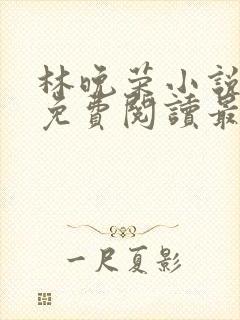 林晚荣小說
免費閱讀最
一尺夏影